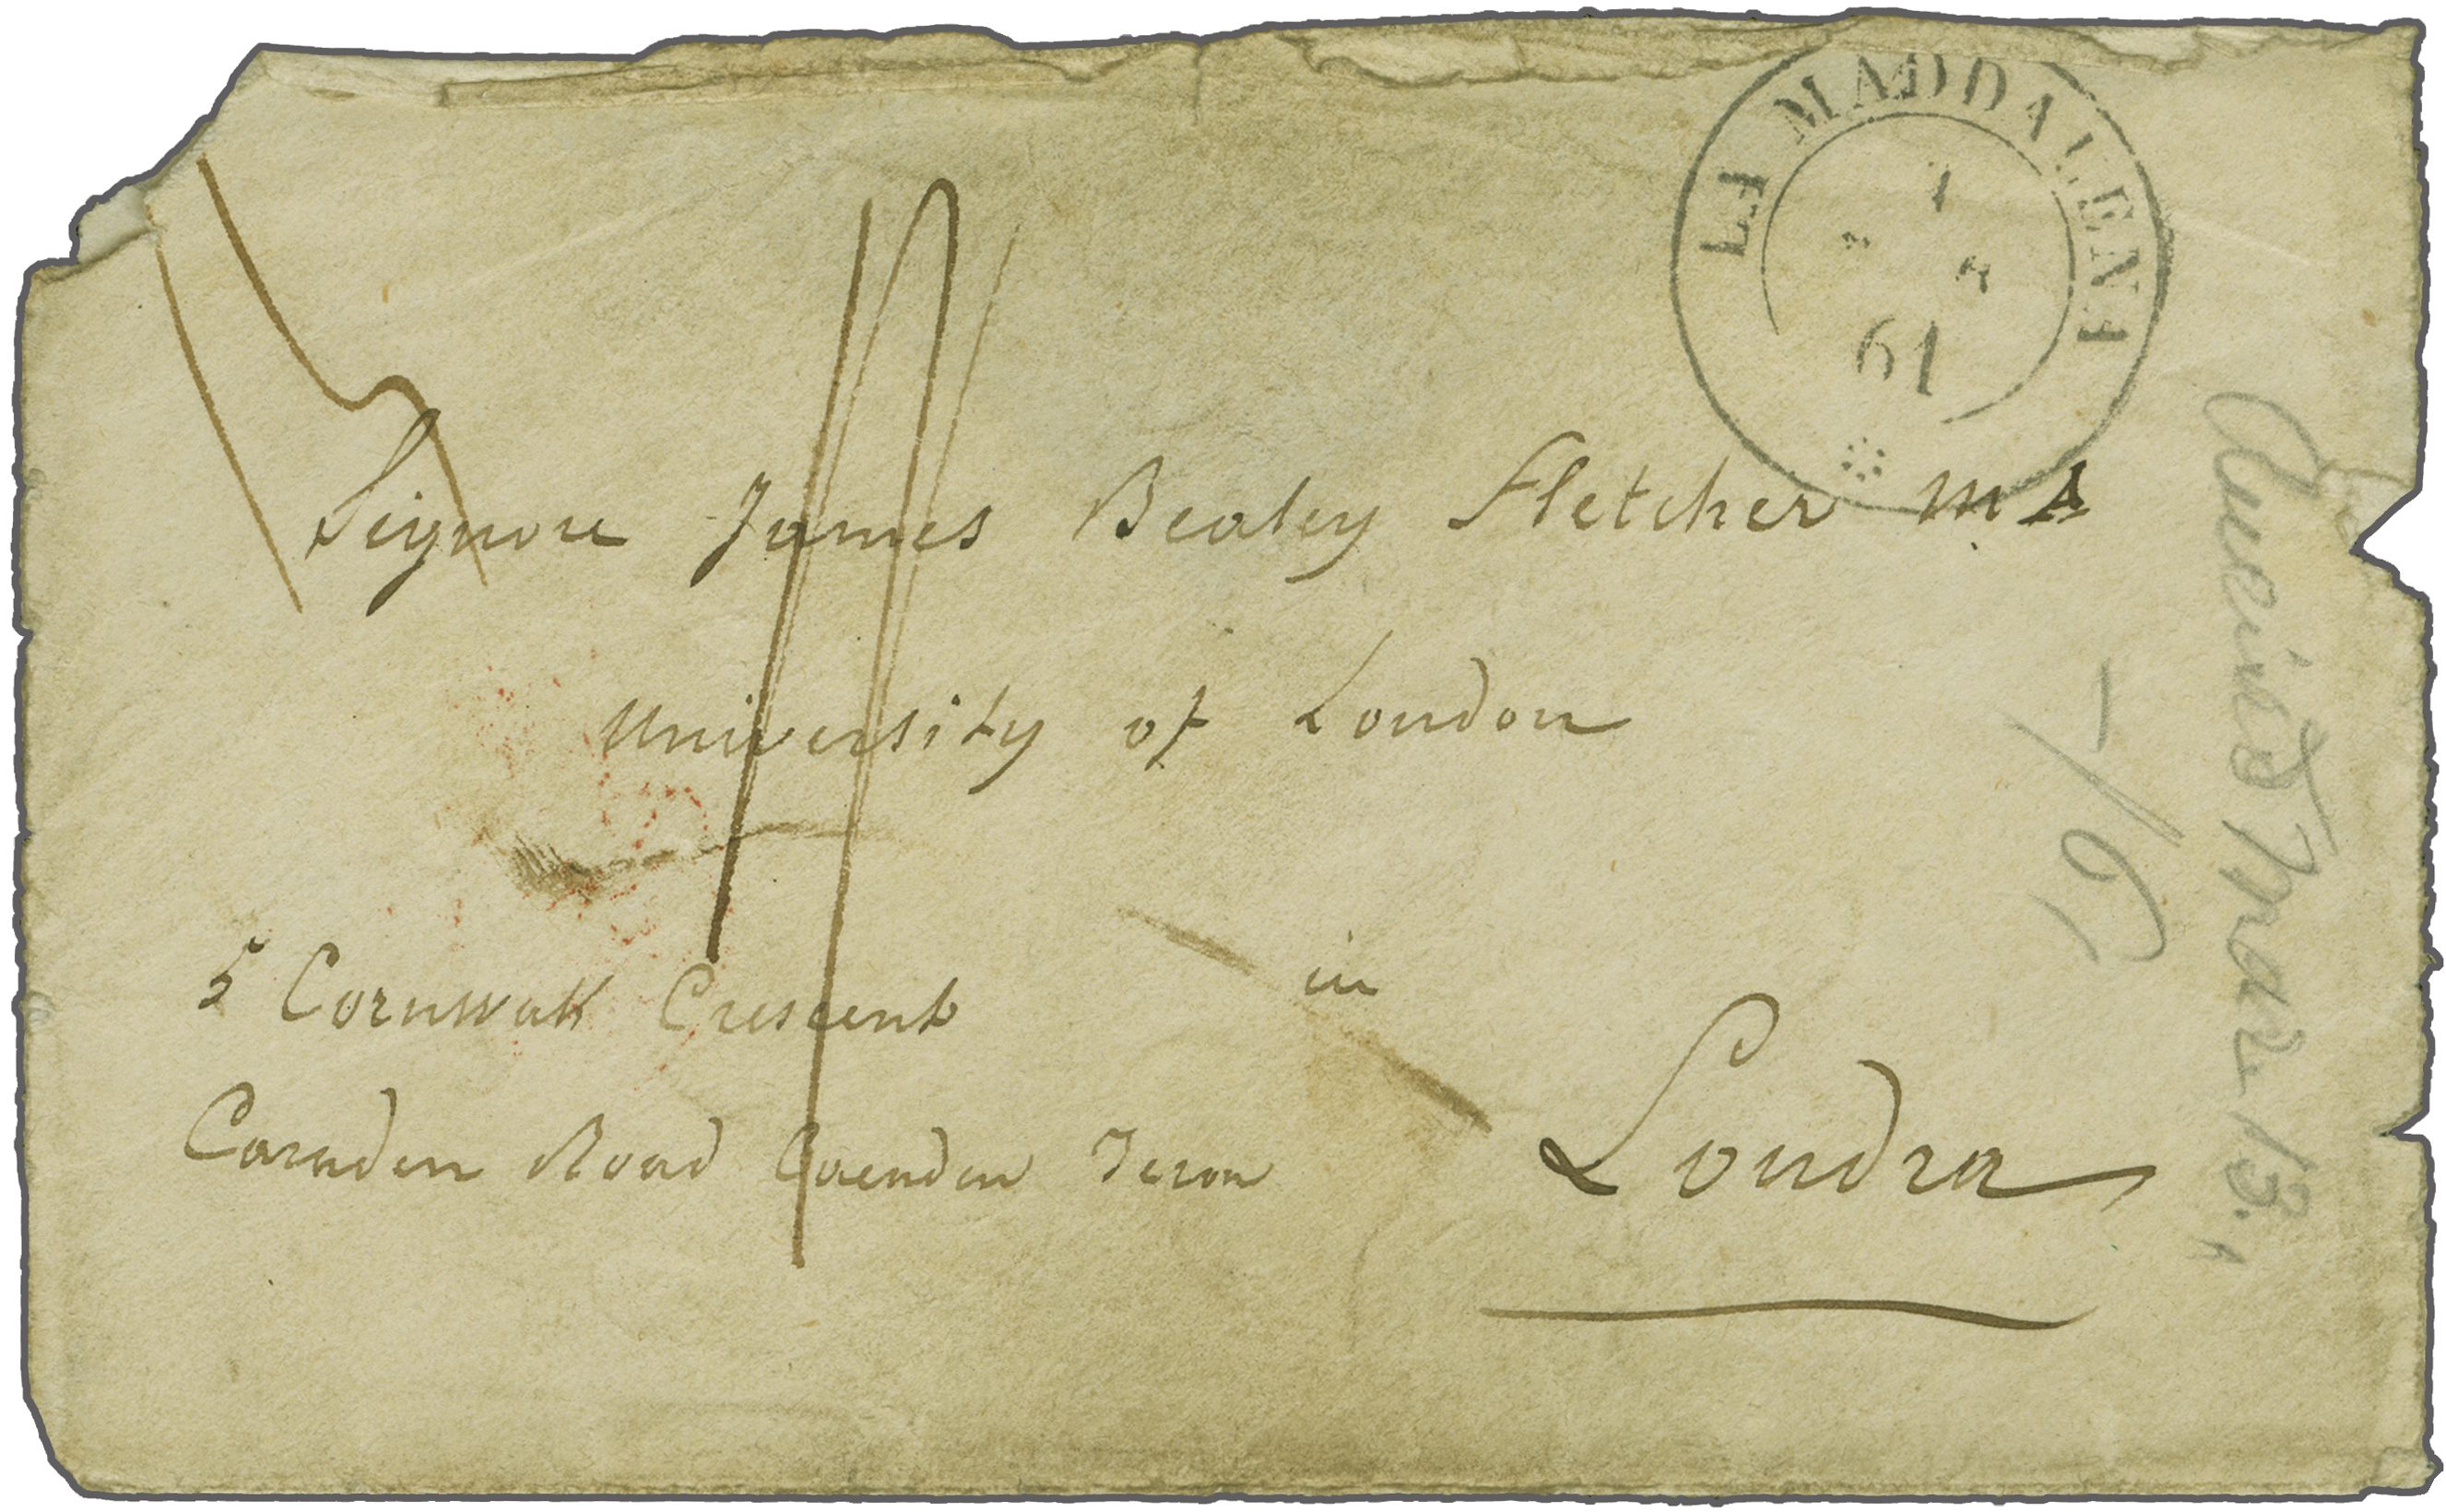 LA MADDALENA
61
Signore James Bealey Fletcher M.A
University of London
5 Cornwall Crescent
in
Camden Road Camden Town
Londra
Received Mar 13,
/61